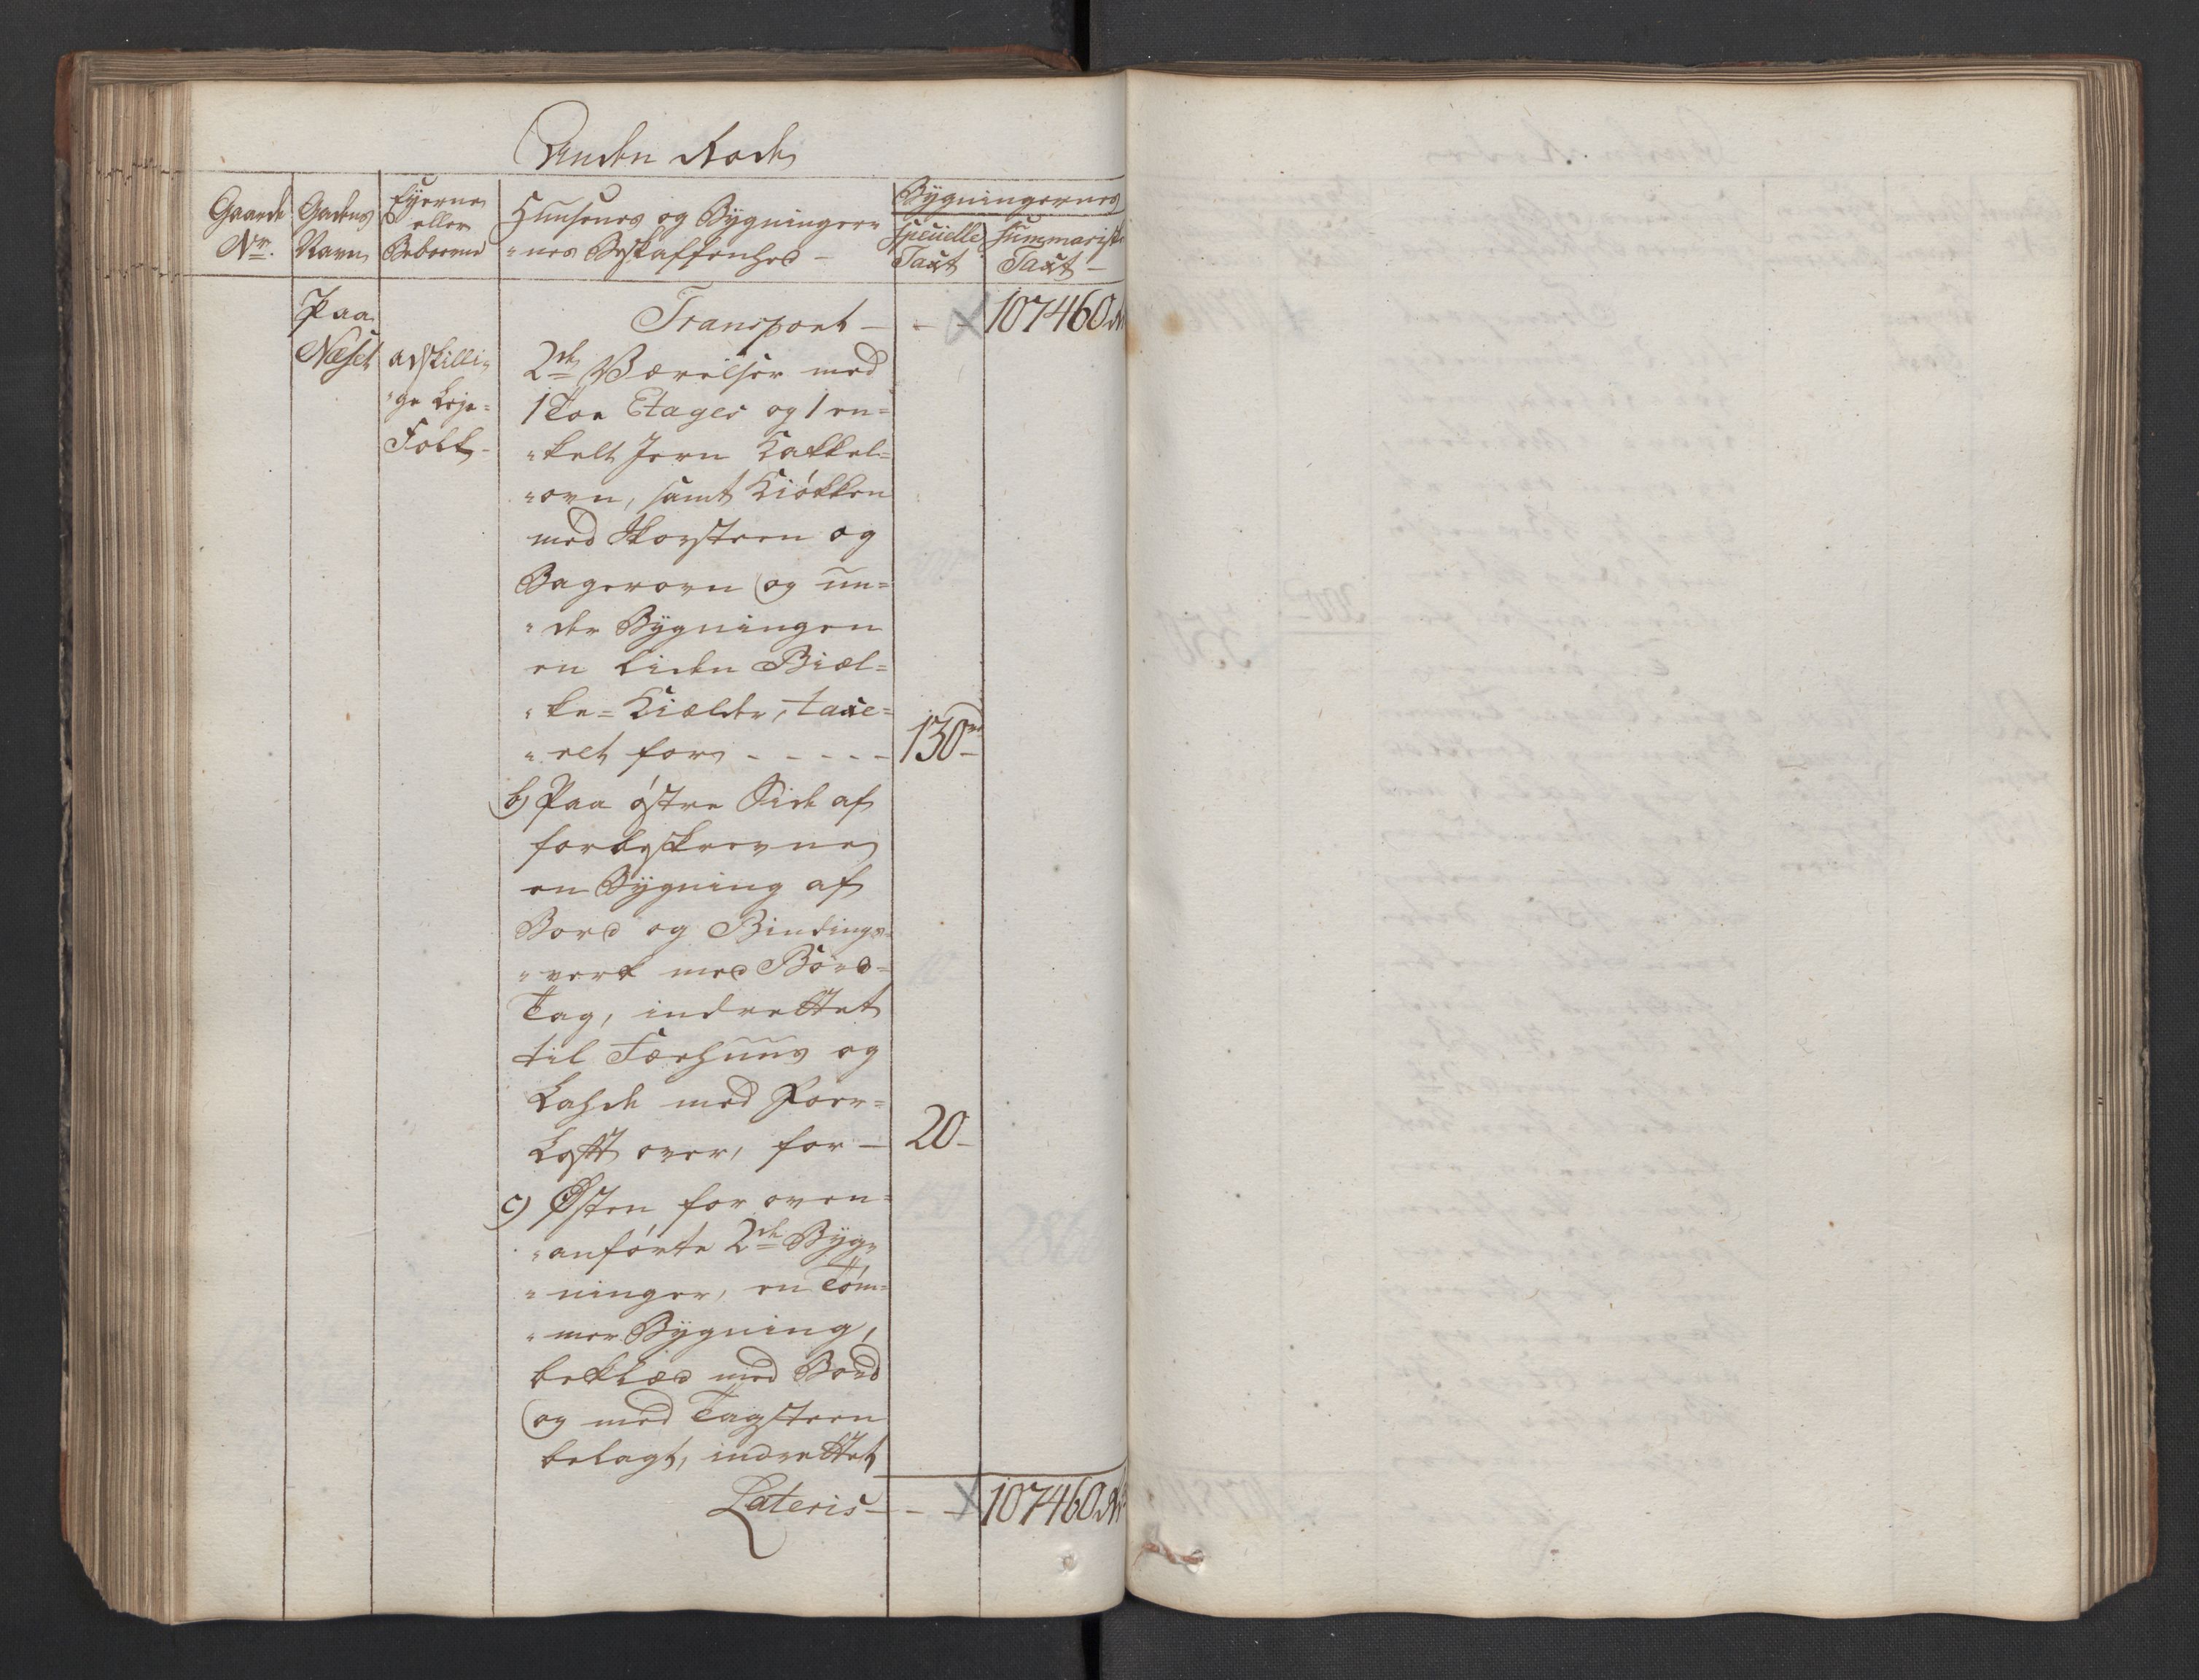 Anden Rode
Gaarde Nr.
Gadens Navn
Eyerne eller Beboerne
Huusenes og Bygninger=
"nes Beskaffenhed -
Bygningernes
specielle Taxt
summariske Taxt -
Paa
Næset
adskilli=
"ge Leje=
Folk -
Transport - - - 107460 Rd
2de Værelser med
1 Toe Etages og 1 en=
"kelt Jern Kakkel=
"ovn, samt Kiökken
med Skorsteen og
Bagerovn og un=
"der Bygningen
en liden Biæl=
"ke=Kielder, taxe=
"ret for - - - - - 130 rd -
b) Paa östre Side af
forbeskrevne
en Bygning af
Bord og Bindings=
"verk med Bord=
Tag, indrettet
til Færhuus og
Lahde med
Loft over, for - 20 -
c) Östen for oven=
"anförte 2de Byg=
"ninger, en Töm=
"mer Bygning,
beklæd med Bord
og med Tagsteen
belagt, indrettet
Lateris - - - 107460 Rd